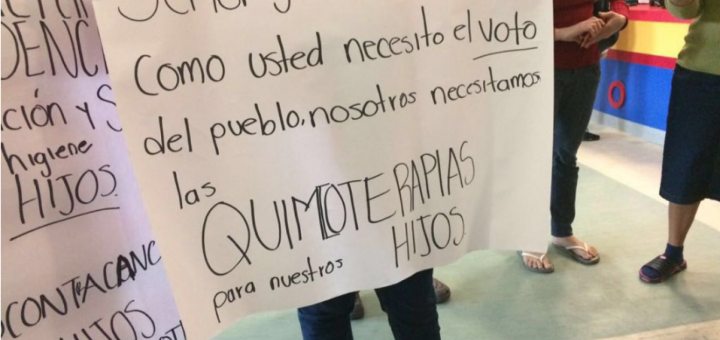 DENC
ción y S
higiene
HIJOS
CONTACANC
Como usted necesito el voto
del pueblo, nosotros necesitamos
las
QUIMIOTERAPIAS
para nuestros HIJOS